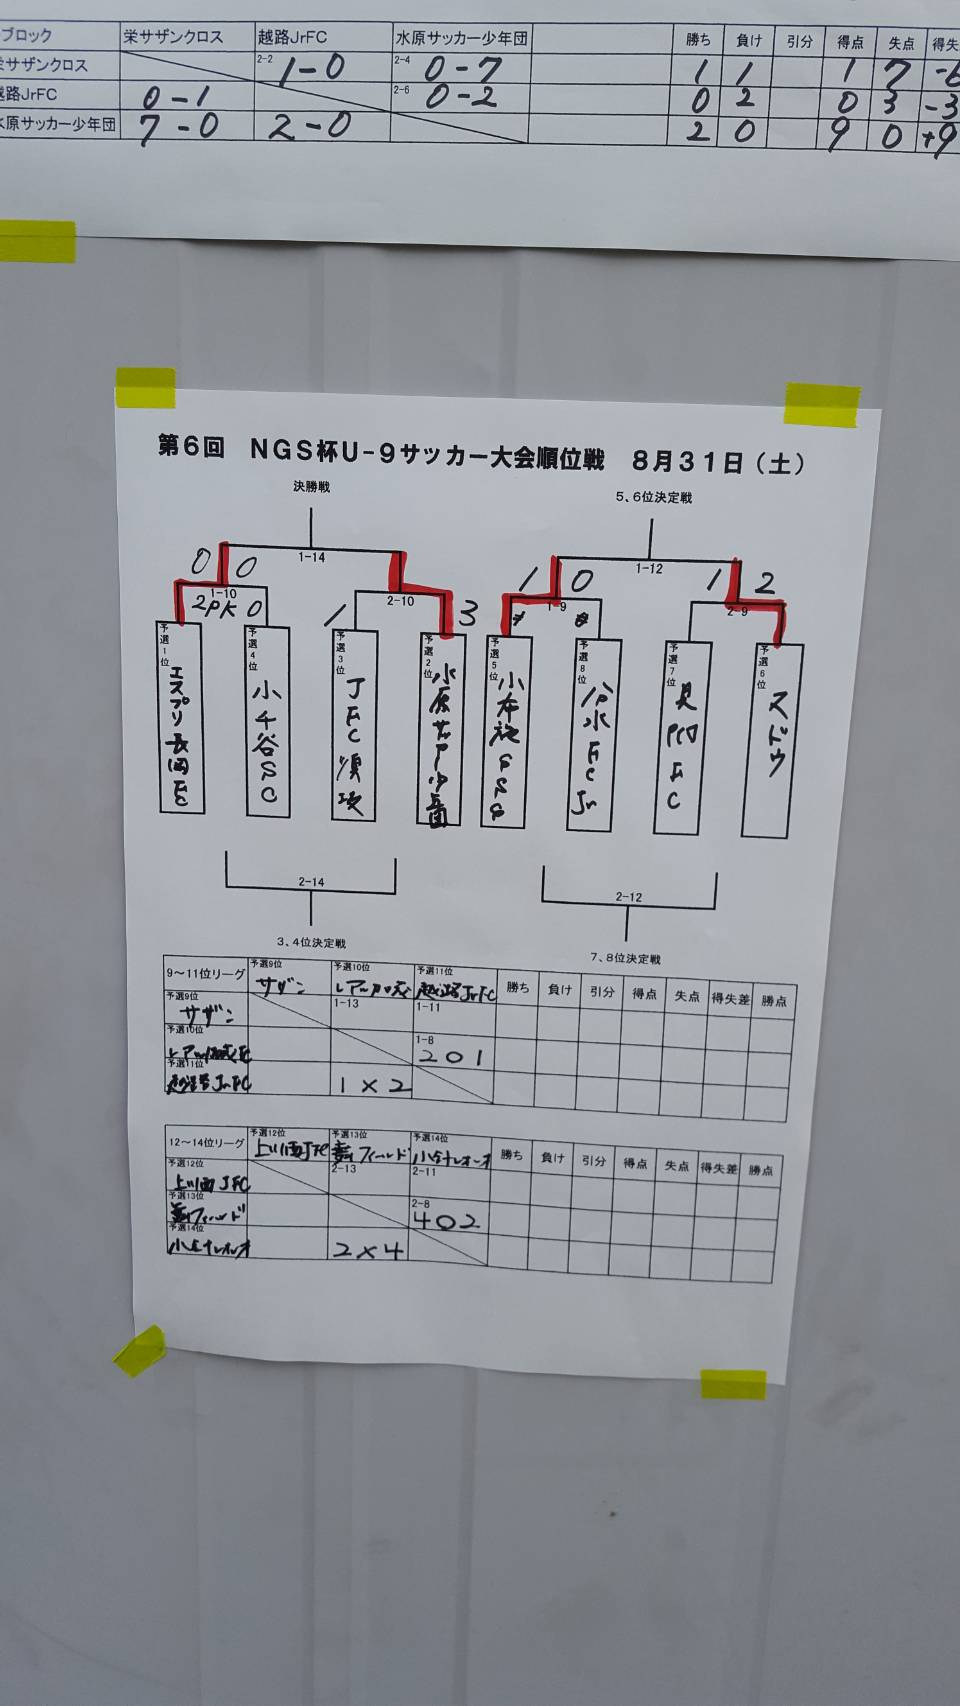 ブロック 栄サザンクロス 越路JrFC 水原サッカー少年団 勝ち 負け 引分 得点 失点 得失
栄サザンクロス 2-2 1-0 2-4 0-7 1 1 1 7 -6
越路JrFC 0-1 2-6 0-2 0 2 0 3 -3
水原サッカー少年団 7-0 2-0 2 0 9 0 +9
第6回 NGS杯U-9サッカー大会順位戦 8月31日(土)
決勝戦 5、6位決定戦
1-14 1-12
0 0 1 0 1 2
1-10 2-10 1-9 2-9
2PK0 1 3
予選1位 エスプリ長岡FC
予選4位 小千谷SC
予選3位 JFC須坂
予選2位 水原サッカー少年団
予選5位 小布施SSS
予選8位 分水FCJr
予選7位 見附FC
予選6位 スドウ
2-14 2-12
3、4位決定戦 7、8位決定戦
9〜11位リーグ 予選9位 サザン 予選10位 予選11位 越路JrFC 勝ち 負け 引分 得点 失点 得失差 勝点
予選9位 サザン 1-13 1-11
予選10位 1-8 2○1
予選11位 越路JrFC 1×2
12〜14位リーグ 予選12位 上川西JFC 予選13位 フィールド 予選14位 勝ち 負け 引分 得点 失点 得失差 勝点
予選12位 上川西JFC 2-13 2-11
予選13位 フィールド 2-8 4○2
予選14位 2×4